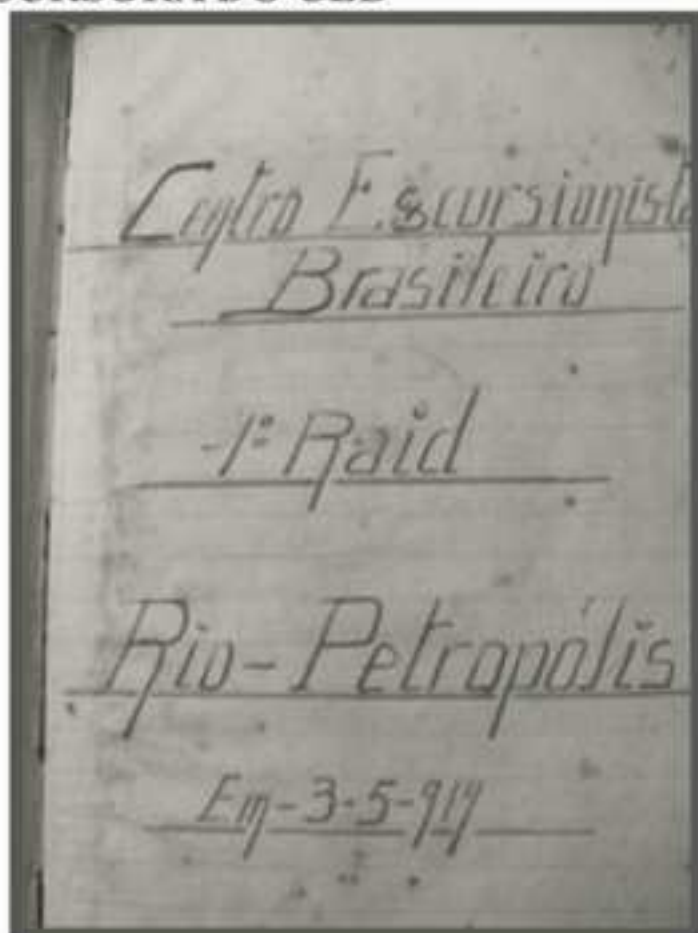 Centro Excursionista
Brasileiro
-1º Raid
Rio - Petropólis
Em - 3 - 5 - 919